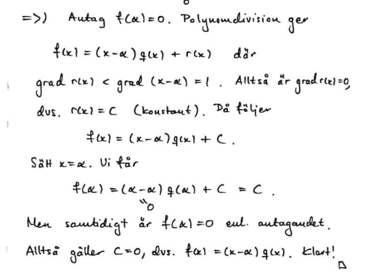 =>) Antag f(α)=0. Polynomdivision ger
f(x) = (x-α)q(x) + r(x) där
grad r(x) < grad (x-α) = 1. Alltså är grad r(x)=0,
dvs. r(x) = C (konstant). Då följer
f(x) = (x-α)q(x) + C.
Sätt x=α. Vi får
f(α) = (α-α)q(α) + C = C.
"0
Men samtidigt är f(α)=0 enl. antagandet.
Alltså gäller C=0, dvs. f(x) = (x-α)q(x). Klart!